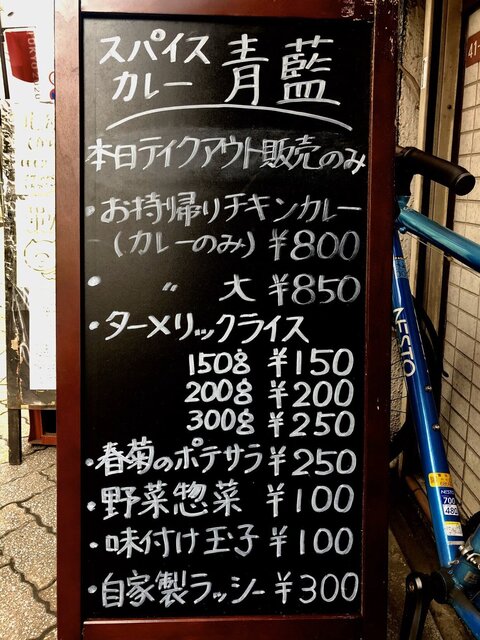 スパイス
カレー 青藍
本日テイクアウト販売のみ
・お持帰りチキンカレー
(カレーのみ) ¥800
・ 〃 大 ¥850
・ターメリックライス
150g ¥150
200g ¥200
300g ¥250
・春菊のポテサラ ¥250
・野菜惣菜 ¥100
・味付け玉子 ¥100
・自家製ラッシー ¥300
NESTO
NESTO
700
480
41-